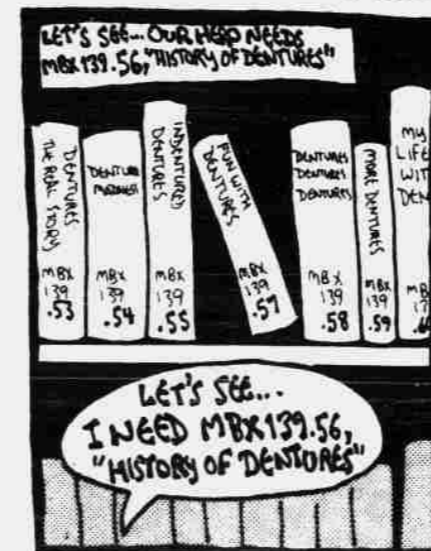 LET'S SEE... OUR HERO NEEDS
MBX139.56, "HISTORY OF DENTURES"
DENTURES
THE REAL STORY
MBX
139
.53
DENTURE
MADNESS
MBX
139
.54
INDENTURES
DENTURES
MBX
139
.55
FUN WITH
DENTURES
MBX
139
.57
DENTURES
DENTURES
DENTURES
MBX
139
.58
MORE DENTURES
MBX
139
.59
MY
LIFE
WIT
DEN
MB
13
.6
LET'S SEE...
I NEED MBX139.56,
"HISTORY OF DENTURES"